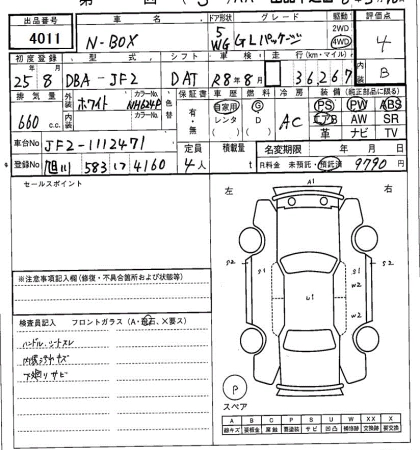 出品番号 車名 ドア形状 グレード 駆動 評価点
4011 N-BOX 5 WG GLパッケージ 2WD 4WD 4
初度登録 型式 シフト 車検 走行(km・マイル) 内装
25年8月 DBA-JF2 DAT 28年8月 36267 B
排気量 外装 ホワイト カラーNo. NH624P 色替 保証書 車歴 燃料 冷房 装備(純正部品に限る)
660cc 内装 カラーNo. 有・無 自家用 レンタ D AC PS PW ABS
エアB AW SR
革 ナビ TV
車台No JF2-1112471 定員 積載量 名変期限 年 月 日
登録No 旭川 583 い 4160 4人 t R料金 未預託・預託済 9790円
セールスポイント
左 右
A1
S2 S1 S1 S2
W2
U1
W2
※注意事項記入欄(修復・不具合箇所および状態等)
検査員記入 フロントガラス(A・飛石、×要ス)
ハンドル、シートスレ
内張キズ
下廻りサビ
P
スペア
A B C P S U W X XX
線キズ 要板金 腐蝕 要塗装 サビ 凹凸 補修跡 要交換 交換済